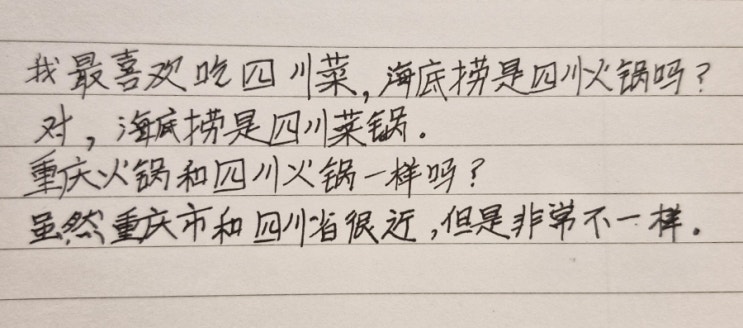 我最喜欢吃四川菜,海底捞是四川火锅吗?
对,海底捞是四川菜锅.
重庆火锅和四川火锅一样吗?
虽然重庆市和四川省很近,但是非常不一样.